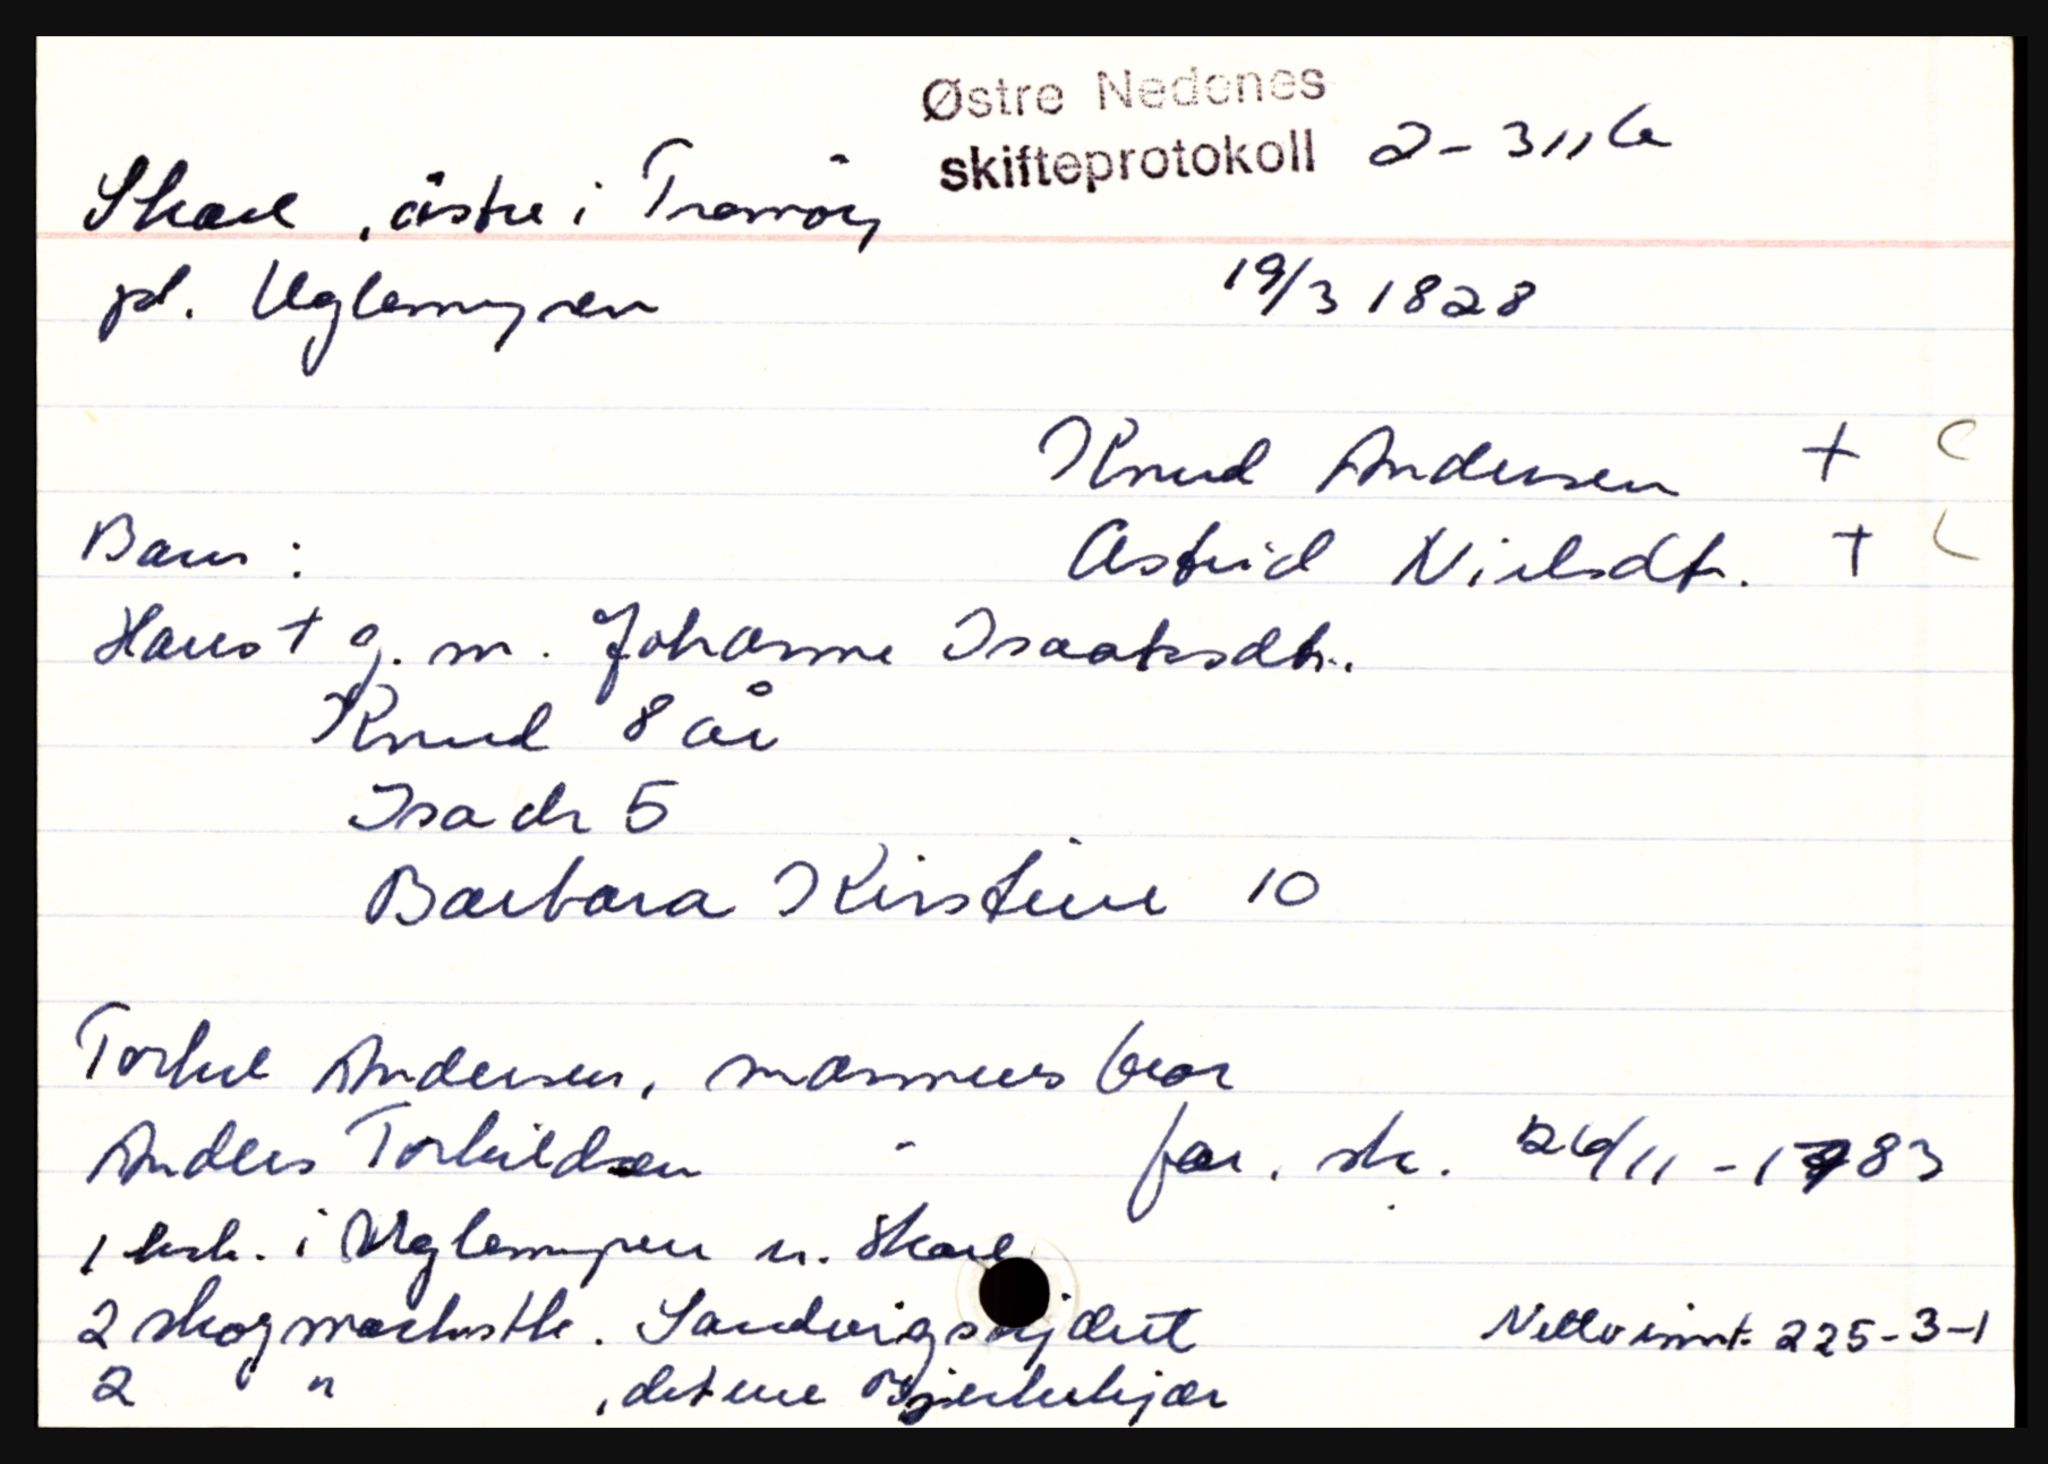 Østre Nedenes
skifteprotokoll 2-311b
Skare, østre i Tromöy
pl. Uglemyren 19/3 1828
Knud Andersen +
Barn: Astrid Nielsdtr. +
Hans + g. m. Johanne Isaaksdtr.
Knud 8 år
Isach 5
Barbara Kirstine 10
Torkel Andersen, mannens bror
Anders Torkildsen - far, sk. 26/11-1783
1 hsk. i Uglemyren u. Skare
2 skogmarkstk. Sandvigs Nettoinnt. 225-3-1
2 " , det ene